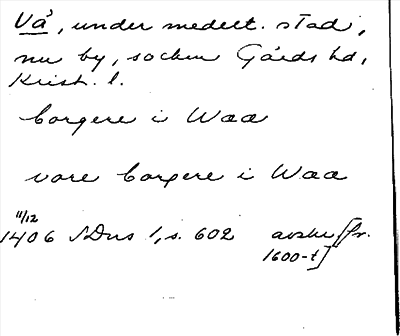 Vå, under medelt. stad,
nu by, socken Gärds hd,
Krist. l.
borgere i Waa
vore borgere i Waa
11/12
1406 SDns 1, s. 602 avskr [fr.
1600-t]